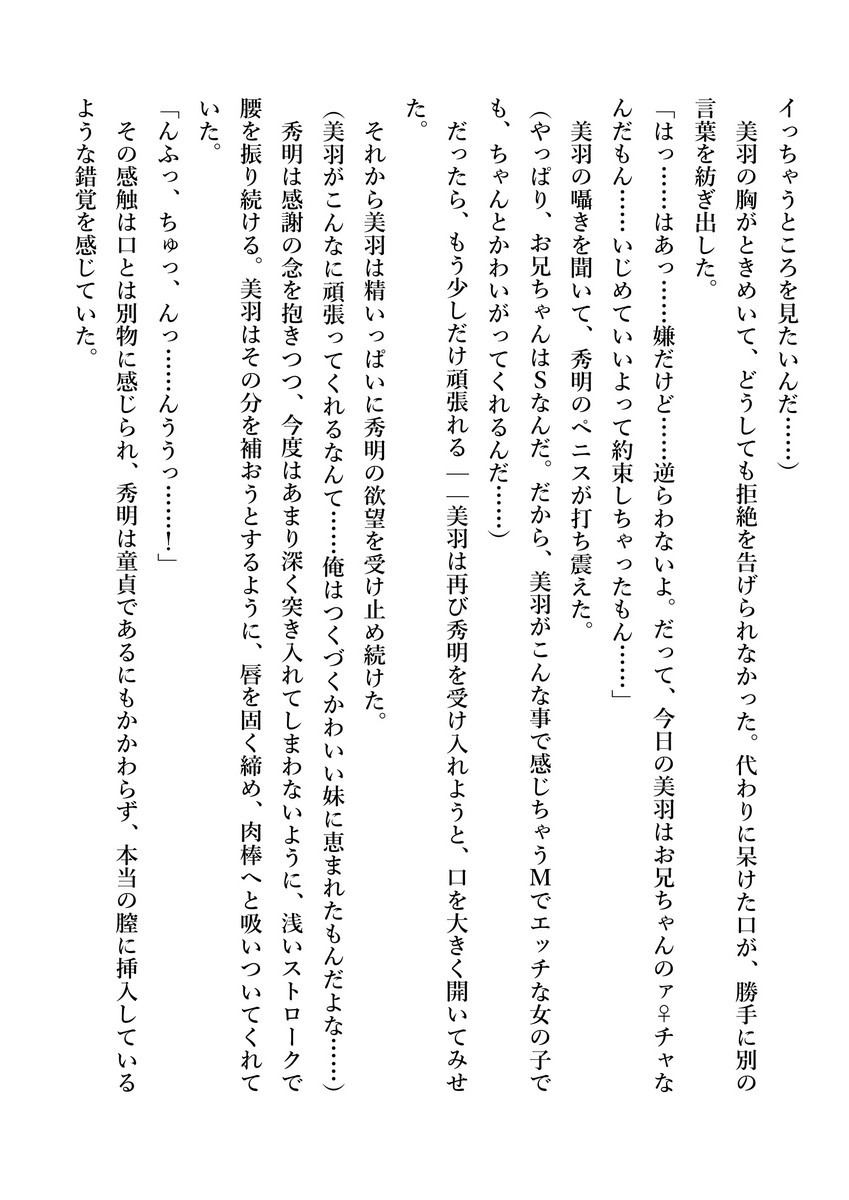 イっちゃうところを見たいんだ……）
美羽の胸がときめいて、どうしても拒絶を告げられなかった。代わりに呆けた口が、勝手に別の
言葉を紡ぎ出した。
「はっ……はあっ……嫌だけど……逆らわないよ。だって、今日の美羽はお兄ちゃんのァ♀チャな
んだもん……いじめていいよって約束しちゃったもん……」
美羽の囁きを聞いて、秀明のペニスが打ち震えた。
（やっぱり、お兄ちゃんはＳなんだ。だから、美羽がこんな事で感じちゃうＭでエッチな女の子で
も、ちゃんとかわいがってくれるんだ……）
だったら、もう少しだけ頑張れる――美羽は再び秀明を受け入れようと、口を大きく開いてみせ
た。
それから美羽は精いっぱいに秀明の欲望を受け止め続けた。
（美羽がこんなに頑張ってくれるなんて……俺はつくづくかわいい妹に恵まれたもんだよな……）
秀明は感謝の念を抱きつつ、今度はあまり深く突き入れてしまわないように、浅いストロークで
腰を振り続ける。美羽はその分を補おうとするように、唇を固く締め、肉棒へと吸いついてくれて
いた。
「んふっ、ちゅっ、んっ……んううっ……！」
その感触は口とは別物に感じられ、秀明は童貞であるにもかかわらず、本当の膣に挿入している
ような錯覚を感じていた。